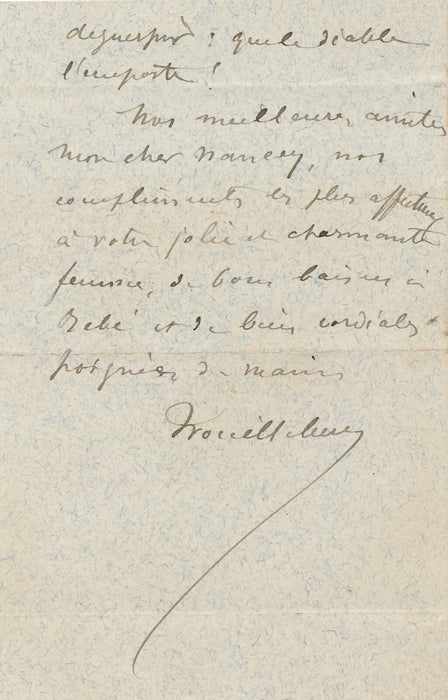 déguerpir : que le diable
l'emporte !
Nos meilleures amitiés
mon cher Nancey, nos
compliments les plus affectueux
à votre jolie et charmante
femme, de bons baisers à
Bébé et de bien cordiales
poignées de mains